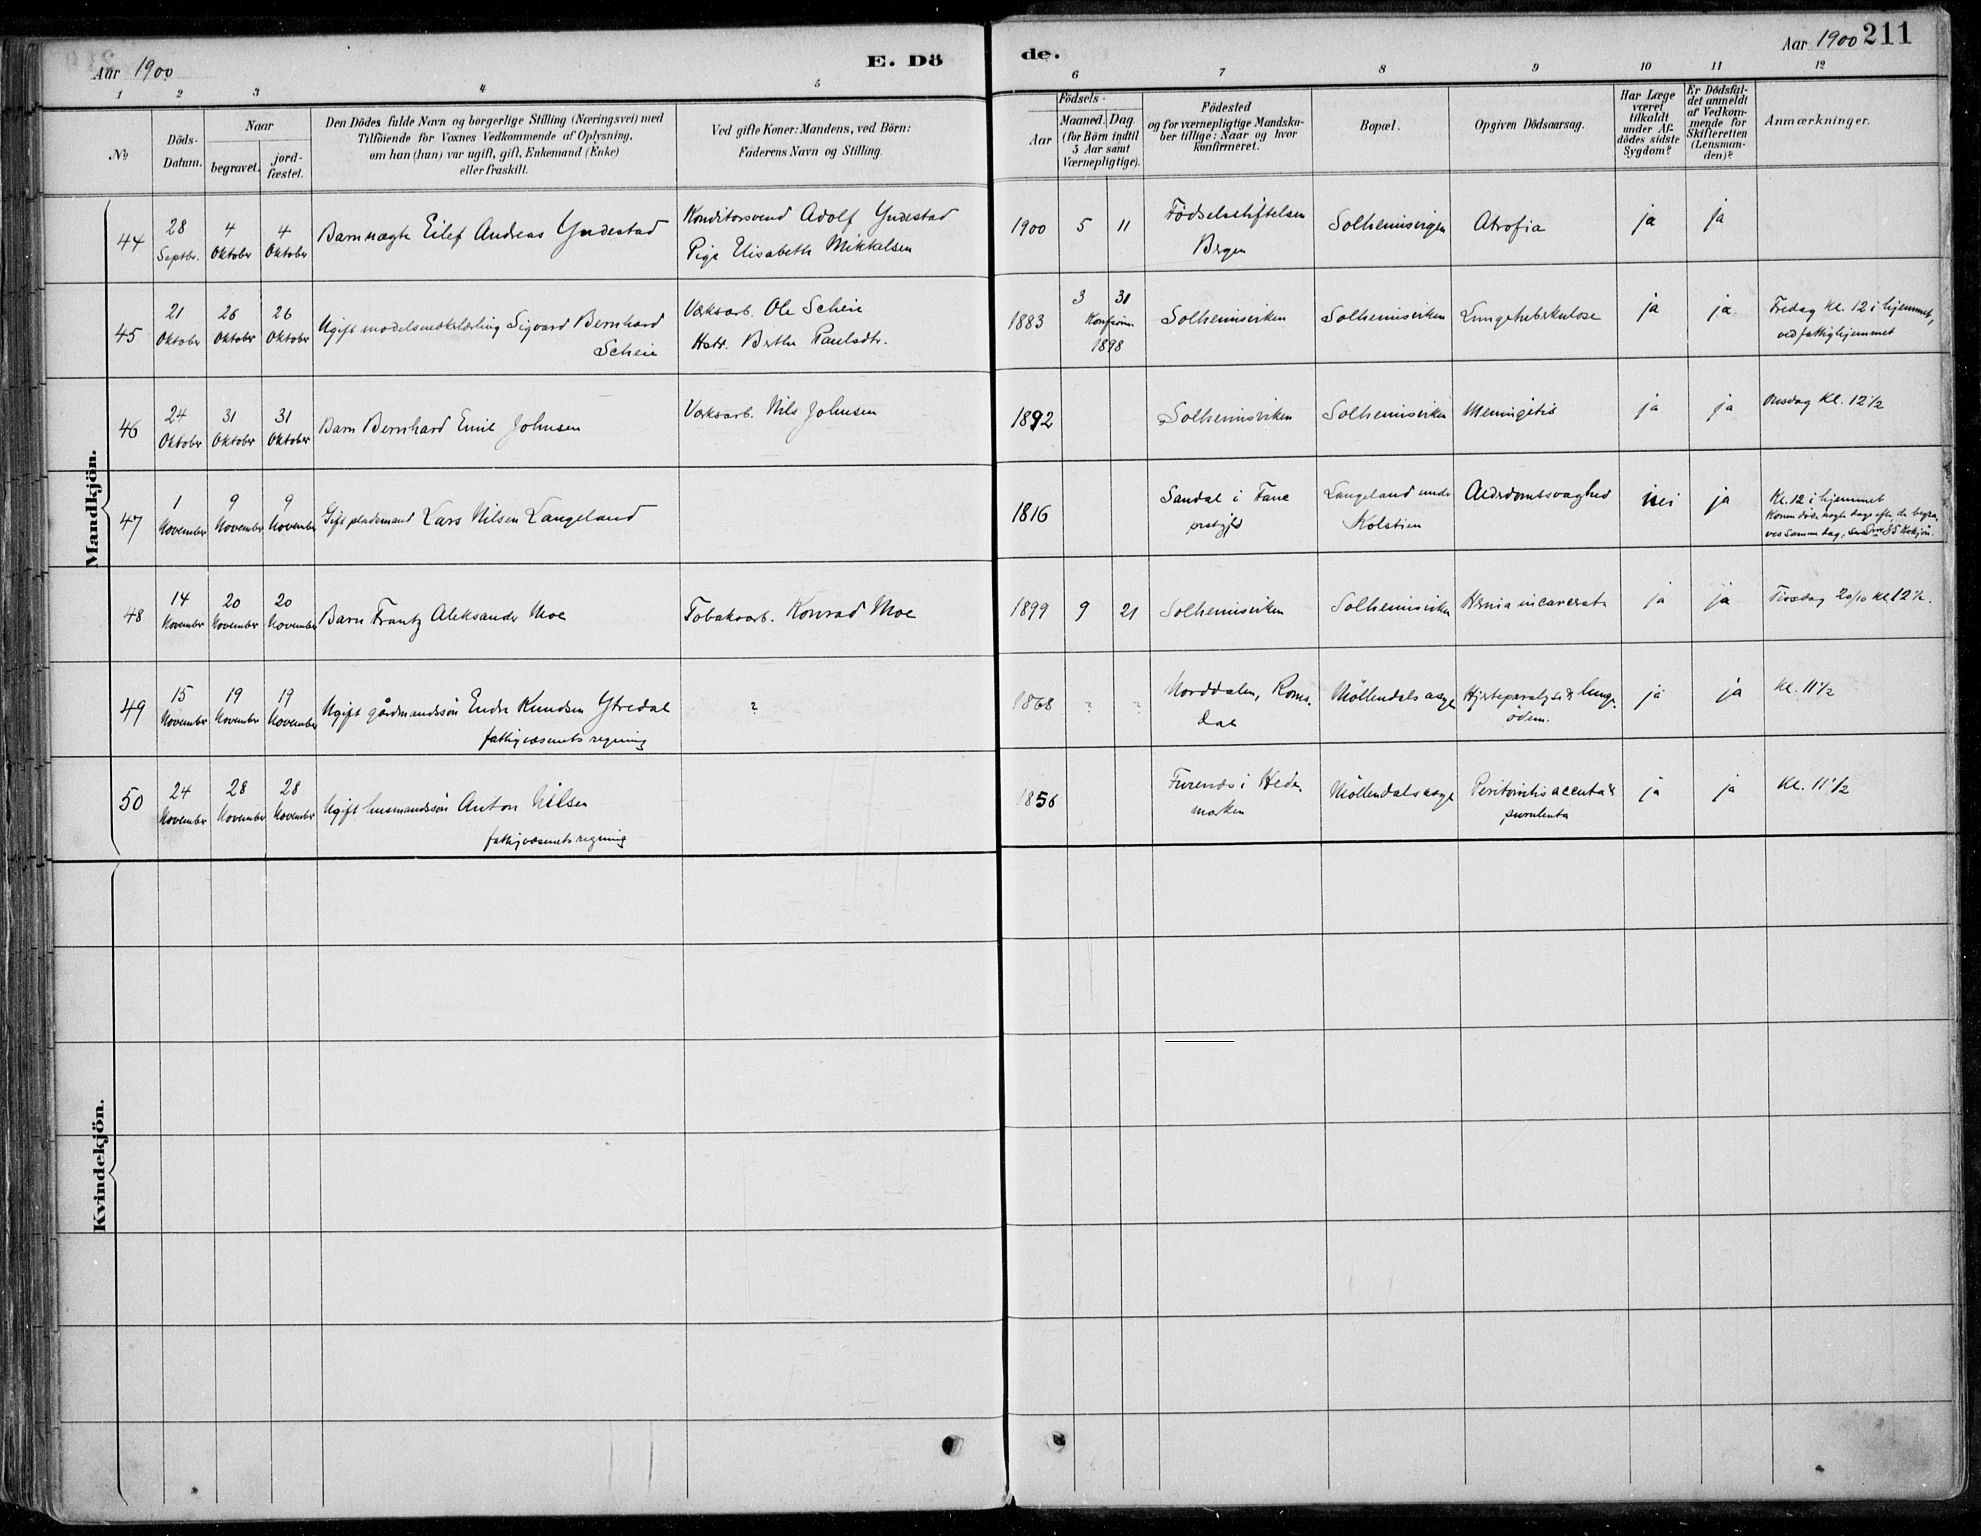 Aar 1900
E. Dö
de.
Aar 1900 211
1 2 3 4 5 6 7 8 9 10 11 12
№
Döds-
Datum.
Naar
begravet.
jord-
fæstet.
Den Dödes fulde Navn og borgerlige Stilling (Næringsvei) med
Tilföiende for Voxnes Vedkommende af Oplysning,
om han (hun) var ugift, gift, Enkemand (Enke)
eller fraskilt.
Ved gifte Koner: Mandens, ved Börn:
Faderens Navn og Stilling.
Födsels-
Aar
Maaned. Dag
(for Börn indtil
5 Aar samt
Værnepligtige).
Födested
og for værnepligtige Mandska-
ber tillige: Naar og hvor
konfirmeret.
Bopæl.
Opgiven Dödsaarsag.
Har Læge
været
tilkaldt
under Af-
dödes sidste
Sygdom?
Er Dödsfal-
det anmeldt
af Vedkom-
mende for
Skifteretten
(Lensman-
den)?
Anmærkninger.
Mandkjön.
44
28
Septbr.
4
Oktober
4
Oktober
Barn uægte Eilef Andreas Yndestad
Konditorsvend Adolf Yndestad
Pige Elisabeth Mikkelsen
1900 5 11
Födselsstiftelsen
Bergen
Solheimsvigen
Atrofia
ja
ja
45
21
Oktober
26
Oktober
26
Oktober
Ugift modelsnekerlærling Sigvard Bernhard
Scheie
Værksarb. Ole Scheie
Hstr. Berthe Paulsdtr.
1883
3 31
Konfirm
1898
Solheimsviken
Solheimsviken
Lungetuberkulose
ja
ja
Fredag Kl. 12 i hjemmet,
ved fattighjemmet
46
24
Oktober
31
Oktober
31
Oktober
Barn Bernhard Emil Johnsen
Værksarb. Nils Johnsen
1892
Solheimsviken
Solheimsviken
Meningitis
ja
ja
Onsdag Kl. 12 1/2
47
1
November
9
November
9
November
Gift pladsmand Lars Nilsen Langeland
1816
Sandal i Fane
prstgjld
Langeland under
Kolstien
Alderdomssvaghed
nei
ja
Kl. 12 i hjemmet
Konen döde nogle dage efter, de begra-
ves samme dag, 85 Kvkjön.
48
14
November
20
November
20
November
Barn Frantz Aleksander Moe
Tobaksarb. Konrad Moe
1899 9 21
Solheimsviken
Solheimsviken
Hernia incarcerata
ja
ja
Tirsdag 20/10 Kl. 12 1/2.
49
15
November
19
November
19
November
Ugift gårdmandssön Endre Knudsen Ytredal
fattigvæsenets regning
?
1868 ? ?
Norddalen, Roms-
dal
Möllendals asyl
Hjerteparalyse & lunge-
ödem.
ja
ja
Kl. 11 1/2
50
24
November
28
November
28
November
Ugift husmandssön Anton Nilsen
fattigvæsenets regning
1856
Furenæs i Hede-
marken
Möllendals asyl
Peritonitis accuta &
purulenta
ja
ja
Kl. 11 1/2
Kvindekjön.